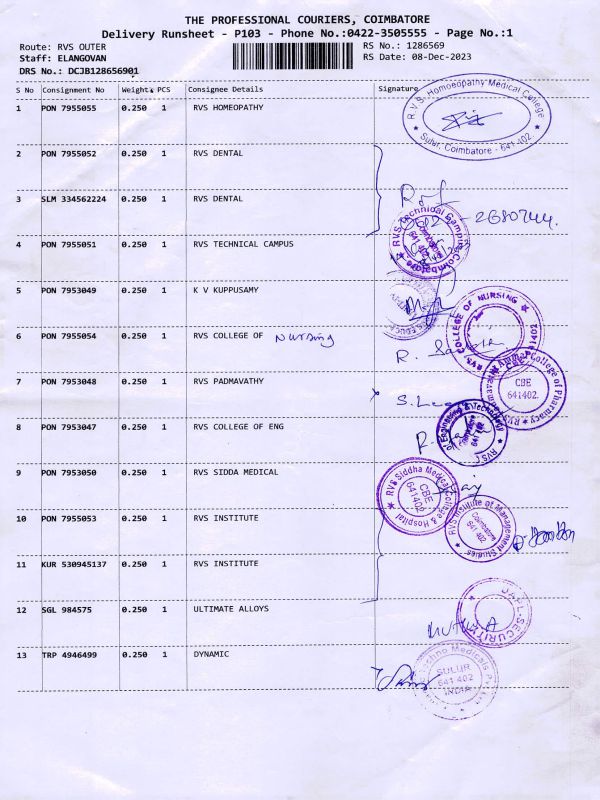 THE PROFESSIONAL COURIERS, COIMBATORE
Delivery Runsheet - P103 - Phone No.:0422-3505555 - Page No.:1
Route: RVS OUTER
RS No.: 1286569
Staff: ELANGOVAN
RS Date: 08-Dec-2023
DRS No.: DCJB128656901
S No Consignment No Weight PCS Consignee Details Signature
1 PON 7955055 0.250 1 RVS HOMEOPATHY
R.V.S. Homoeopathy Medical College
Sulur, Coimbatore - 641 402.
2 PON 7955052 0.250 1 RVS DENTAL
3 SLM 334562224 0.250 1 RVS DENTAL
- 2680744.
RVS Technical Campus
Coimbatore
641 402
4 PON 7955051 0.250 1 RVS TECHNICAL CAMPUS
5 PON 7953049 0.250 1 K V KUPPUSAMY
RVS COLLEGE OF NURSING
6 PON 7955054 0.250 1 RVS COLLEGE OF Nursing
College of Pharmacy
CBE
641402.
7 PON 7953048 0.250 1 RVS PADMAVATHY
8 PON 7953047 0.250 1 RVS COLLEGE OF ENG
Engineering & Technology
9 PON 7953050 0.250 1 RVS SIDDA MEDICAL
RVS Siddha Medical College & Hospital
CBE
641402
10 PON 7955053 0.250 1 RVS INSTITUTE
RVS Institute of Management Studies
Coimbatore
641 402
11 KUR 530945137 0.250 1 RVS INSTITUTE
12 SGL 984575 0.250 1 ULTIMATE ALLOYS
UAPL-SECURITY
13 TRP 4946499 0.250 1 DYNAMIC
SULUR
641 402
INDIA